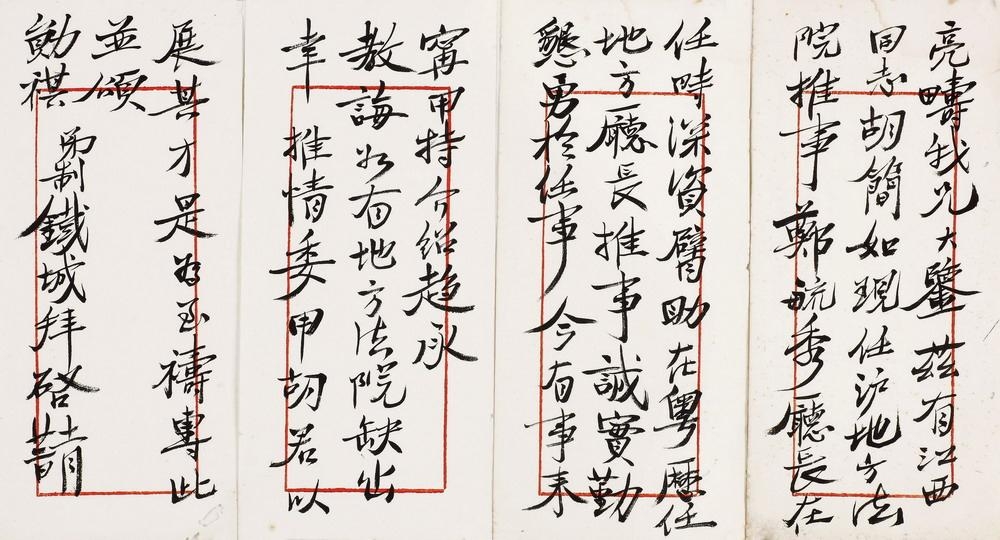 亮疇我兄大鑒茲有江西
同志胡簡如現任沪地方法
院推事鄭毓秀廳長在
任時深資臂助在粵歷任
地方廳長推事誠實勤
懇勇於任事今有事來
甯用特介紹趨承
教誨如有地方法院缺出
幸推情委用胡君以
展其才是為至禱專此
並頌
勛祺 弟制鐵城拜啓